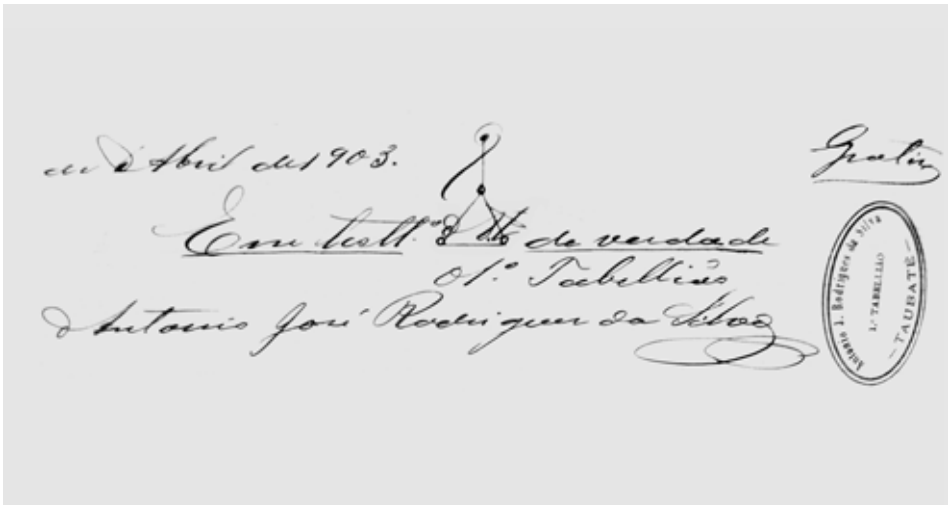 de Abril de 1903.
Gratis
Em testº de verdade
O 1º Tabellião
Antonio José Rodrigues da Silva
Antonio J. Rodrigues da Silva
1º TABELLIÃO
— TAUBATÉ —